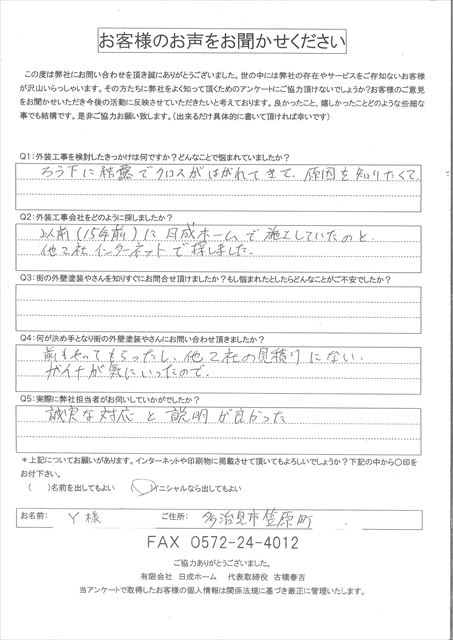 お客様のお声をお聞かせください
この度は弊社にお問い合わせを頂き誠にありがとうございました。世の中には弊社の存在やサービスをご存知ないお客様
が沢山いらっしゃいます。その方たちに弊社をよく知って頂くためのアンケートにご協力頂けないでしょうか?お客様のご意見
をお聞かせいただき今後の活動に反映させていただきたいと考えております。良かったこと、嬉しかったことどのような些細な
事でも結構です。是非ご協力お願い致します。(出来るだけ具体的に書いて頂ければ幸いです)
Q1:外装工事を検討したきっかけは何ですか?どんなことで悩まれていましたか?
ろう下に結露でクロスがはがれてきて、原因を知りたくて、
Q2:外装工事会社をどのように探しましたか?
以前(15年前)に日成ホームで施工していたのと、
他2社インターネットで探しました。
Q3:街の外壁塗装やさんを知りすぐにお問合せ頂けましたか?もし悩まれたとしたらどんなことがご不安でしたか?
Q4:何が決め手となり街の外壁塗装やさんにお問い合わせ頂きましたか?
前もやってもらったし、他2社の見積りにない
ガイナが気にいったので、
Q5:実際に弊社担当者がお伺いしていかがでしたか?
誠実な対応と説明が良かった
*上記についてお願いがあります。インターネットや印刷物に掲載させて頂いてもよろしいでしょうか?下記の中から〇印を
お付下さい。
( )名前を出してもよい (〇)イニシャルなら出してもよい
お名前: Y様 ご住所: 多治見市笠原町
FAX 0572-24-4012
ご協力ありがとうございました。
有限会社 日成ホーム 代表取締役 古橋春吉
当アンケートで取得したお客様の個人情報は関係法規に基づき厳正に管理いたします。